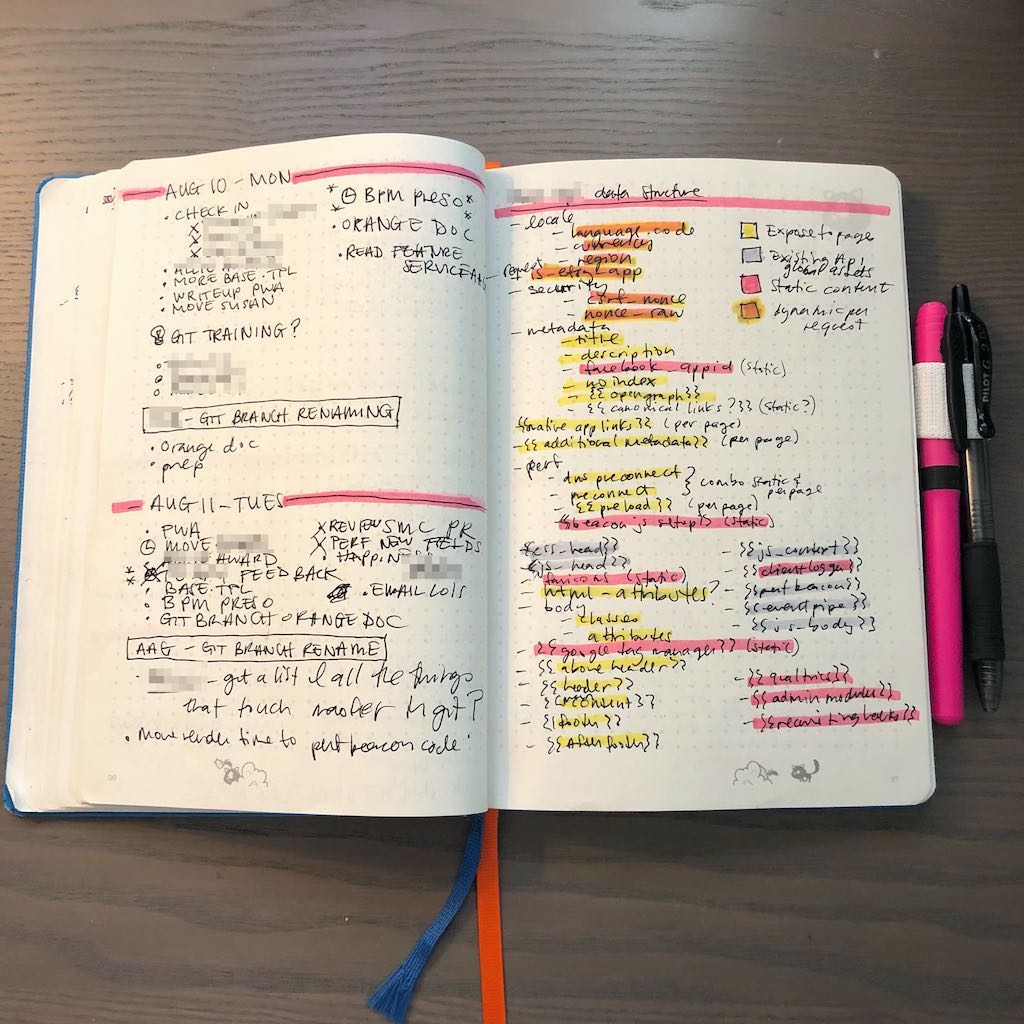 AUG 10 - MON
• CHECK IN
• MORE BASE.TPL
• WRITEUP PWA
• MOVE SUSAN
GIT TRAINING?
- GIT BRANCH RENAMING
• Orange doc
• prep
* BPM PRESO *
• ORANGE DOC *
• READ FEATURE
AUG 11 - TUES
• PWA
MOVE
AWARD
FEEDBACK
• BASE.TPL
• BPM PRESO
• GIT BRANCH ORANGE DOC
X REVIEW SMC PR
X PERF NEW FIELDS
• EMAIL LOIS
AAG - GIT BRANCH RENAME
- get a list of all the things
that touch master in git?
• Move render time to perf beacon code
36
data structure
- locale
- language.code
- currency
- region
- security
- csrf_nonce
- nonce-raw
- metadata
- title
- description
- facebook_appid (static)
- noindex
- {{opengraph}}
- {{canonical links?}} (static?)
{{native app links}} (per page)
- {{additional metadata}} (per page)
- perf
- dns preconnect
- preconnect
} combo static & per page
- {{preload}} (per page)
{{beacon js setup}} (static)
{{css_head}}
{{js_head}}
- favicons (static)
- html-attributes?
- body
- classes
- attributes
- {{google tag manager}} (static)
- {{above header}}
- {{header}}
- {{content}}
- {{footer}}
- {{after footer}}
Expose to page
Existing Api
global assets
Static content
dynamic per
request
- {{js_context}}
- {{client logger}}
- {{perf beacon}}
- {{event pipe}}
- {{js-body}}
- {{qualtrics}}
- {{admin module}}
- {{recruiting hooks}}
37
PILOT G2